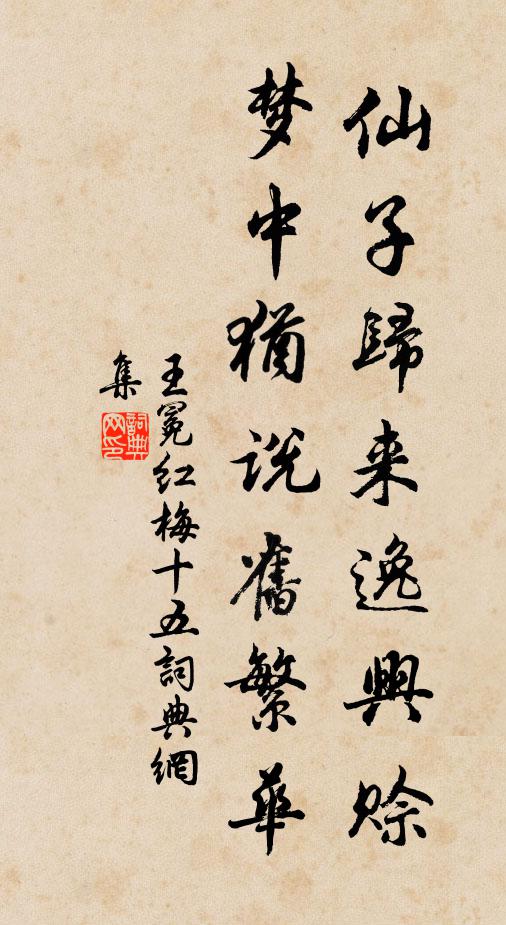 仙子歸来逸興賒
梦中猶说舊繁華
王冕红梅十五詞典網
集
詞典网印